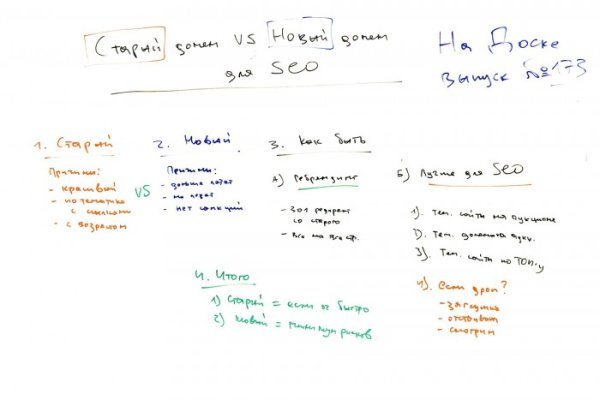 Старый домен VS Новый домен
для SEO
На Доске
Выпуск №173
1. Старый
Причины:
- красивый
- по тематике
с ссылками
- с возрастом
VS
2. Новый
Причины:
- дольше
- не
- нет санкций
3. Как быть
А) Ребрендинг
- 301 редирект
со старого
- Все на все стр.
Б) Лучше для SEO
1). Тем. сайты на аукционе
2). Тем. домены аукц.
3). Тем. сайты по ТОП-у
4). Если дроп?
- заглушка
-
- смотрим
4. Итого
1) Старый = если оч быстро
2) Новый = минимум рисков